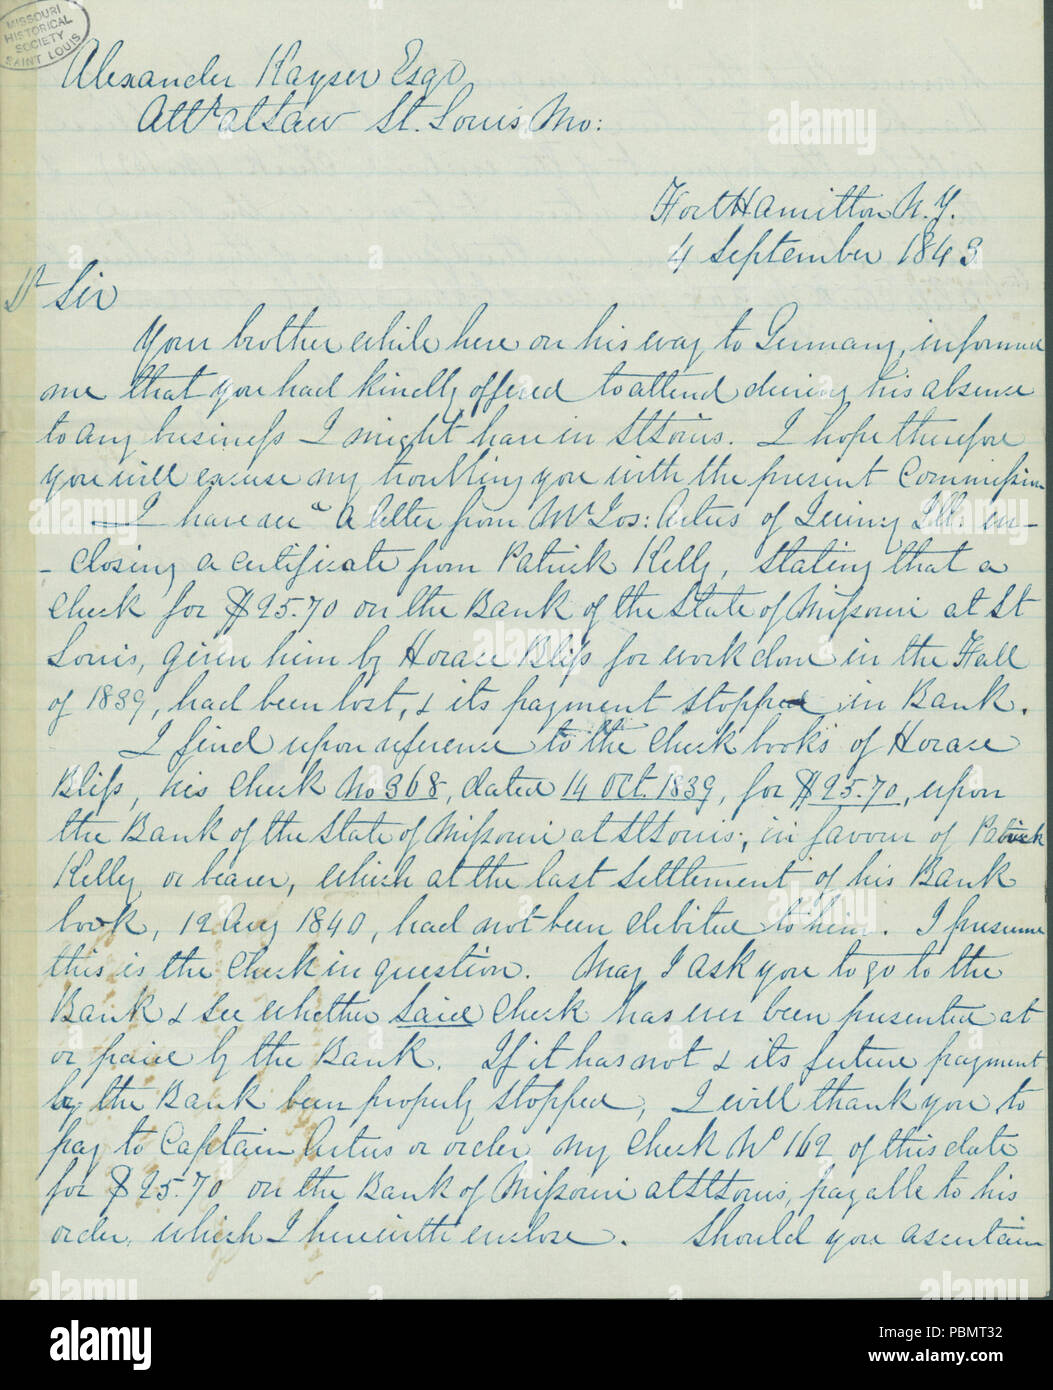 MISSOURI
HISTORICAL
SOCIETY
SAINT LOUIS
Alexander Kayser Esqr
Attr at Law St. Louis Mo:
Fort Hamilton N.Y.
4 September 1843.
Dr Sir
Your brother while here on his way to Germany, informed
me that you had kindly offered to attend during his absence
to any business I might have in St Louis. I hope therefore
you will excuse my troubling you with the present Commission
I have recd a letter from Mr Jos: Artus of Quincy Ill: en-
-closing a certificate from Patrick Kelly, stating that a
check for $25.70 on the Bank of the State of Missouri at St
Louis, given him by Horace Bliss for work done in the Fall
of 1839, had been lost, & its payment stopped in Bank.
I find upon reference to the Check books of Horace
Bliss, his Check No 368, dated 14 Oct. 1839, for $25.70, upon
the Bank of the State of Missouri at St Louis, in favour of Patrick
Kelly or bearer, which at the last settlement of his Bank
book, 12 Aug 1840, had not been debited to him. I presume
this is the Check in question. May I ask you to go to the
Bank & see whether said Check has ever been presented at
or paid by the Bank. If it has not & its future payment
by the Bank been properly stopped, I will thank you to
pay to Captain Artus or order my Check No 162 of this date
for $25.70 on the Bank of Missouri at St Louis, payable to his
order, which I herewith enclose. Should you ascertain
alamy
Image ID: PBMT32
www.alamy.com